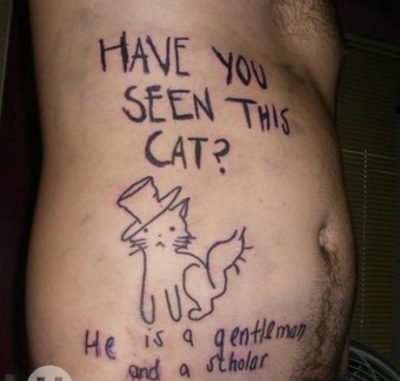 HAVE YOU
SEEN THIS
CAT?
He is a gentleman
and a scholar